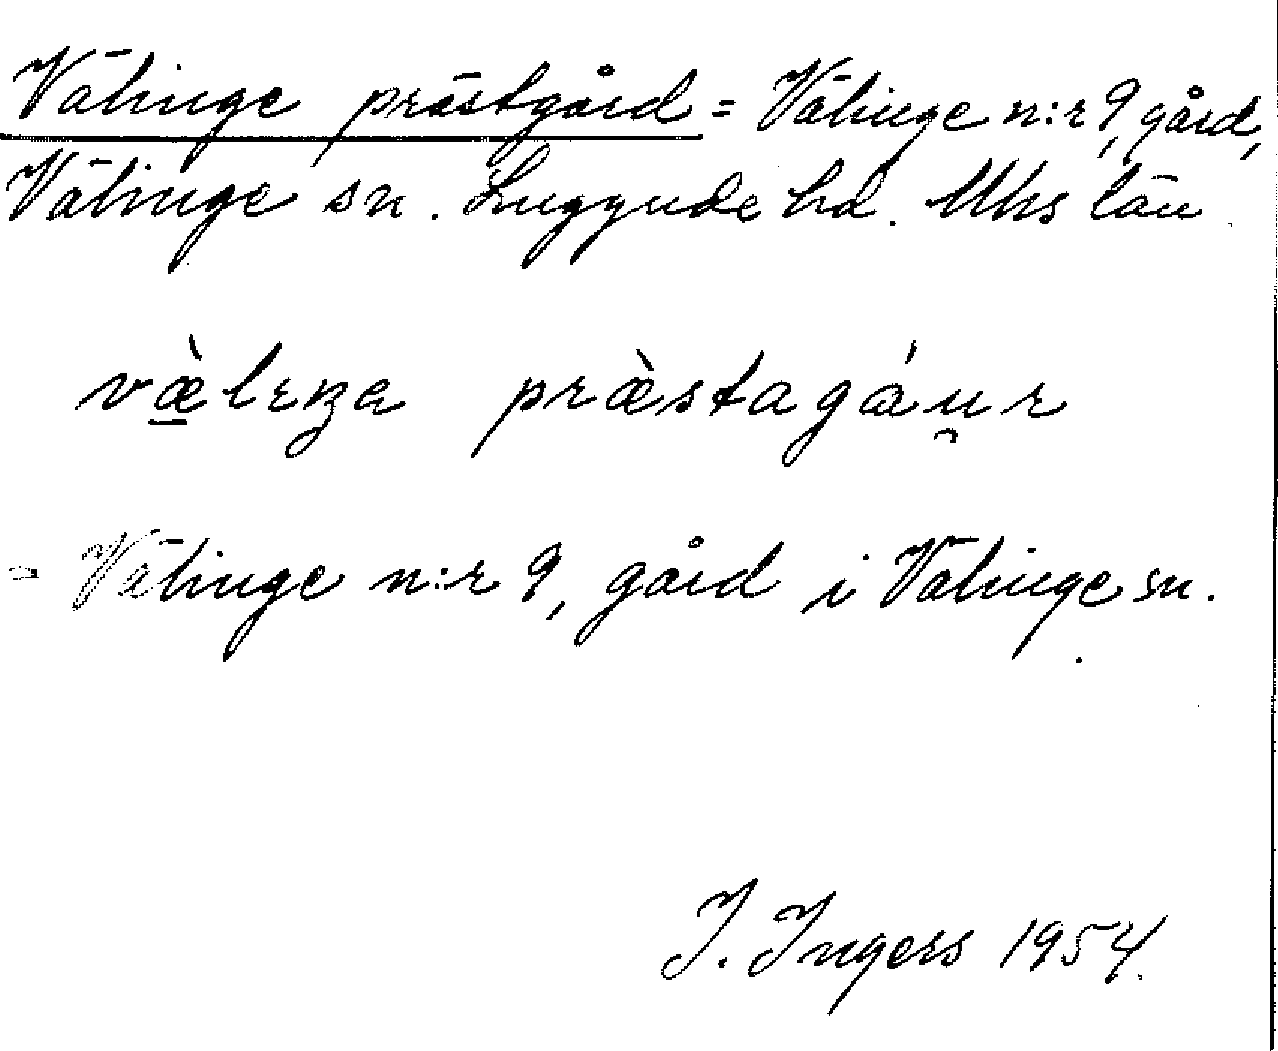 Välinge prästgård = Välinge n:r 9, gård,
Välinge sn. Luggude hd. Mhs län
væ̱̀lɪŋa præ̀stagáu̯r
= Välinge n:r 9, gård i Välinge sn.
I. Ingers 1954.